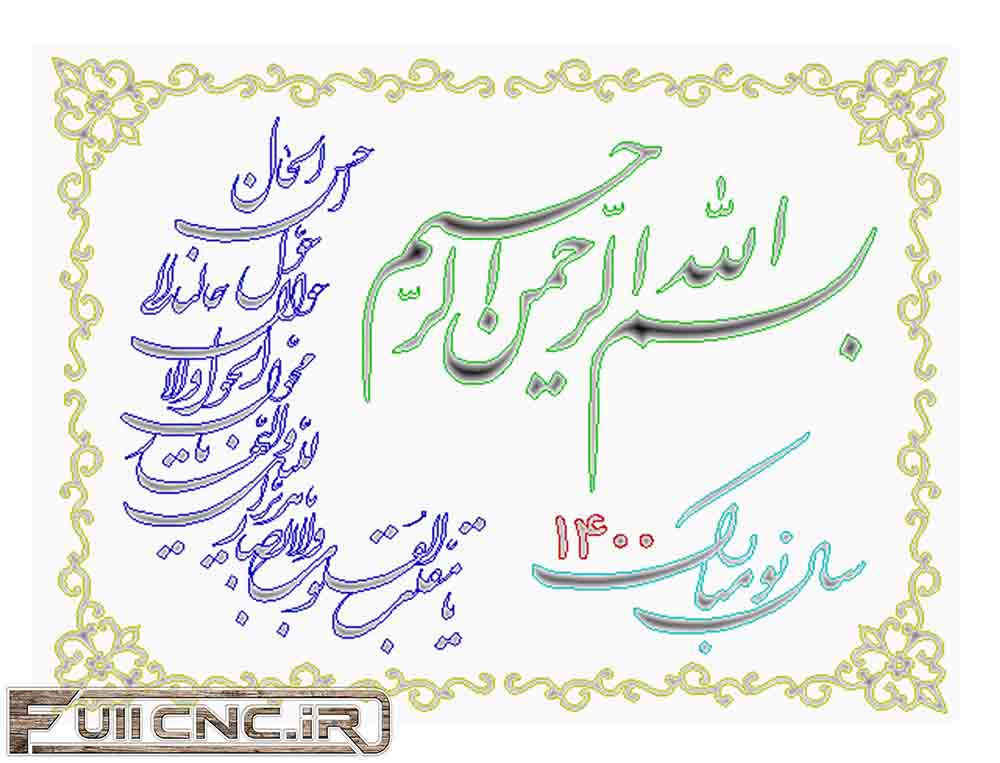 بسم الله الرحمن الرحیم
یا مقلب القلوب والابصار
یا مدبر اللیل والنهار
یا محول الحول والاحوال
حول حالنا الی
احسن الحال
سال نو مبارک
۱۴۰۰
FullCNC.iR